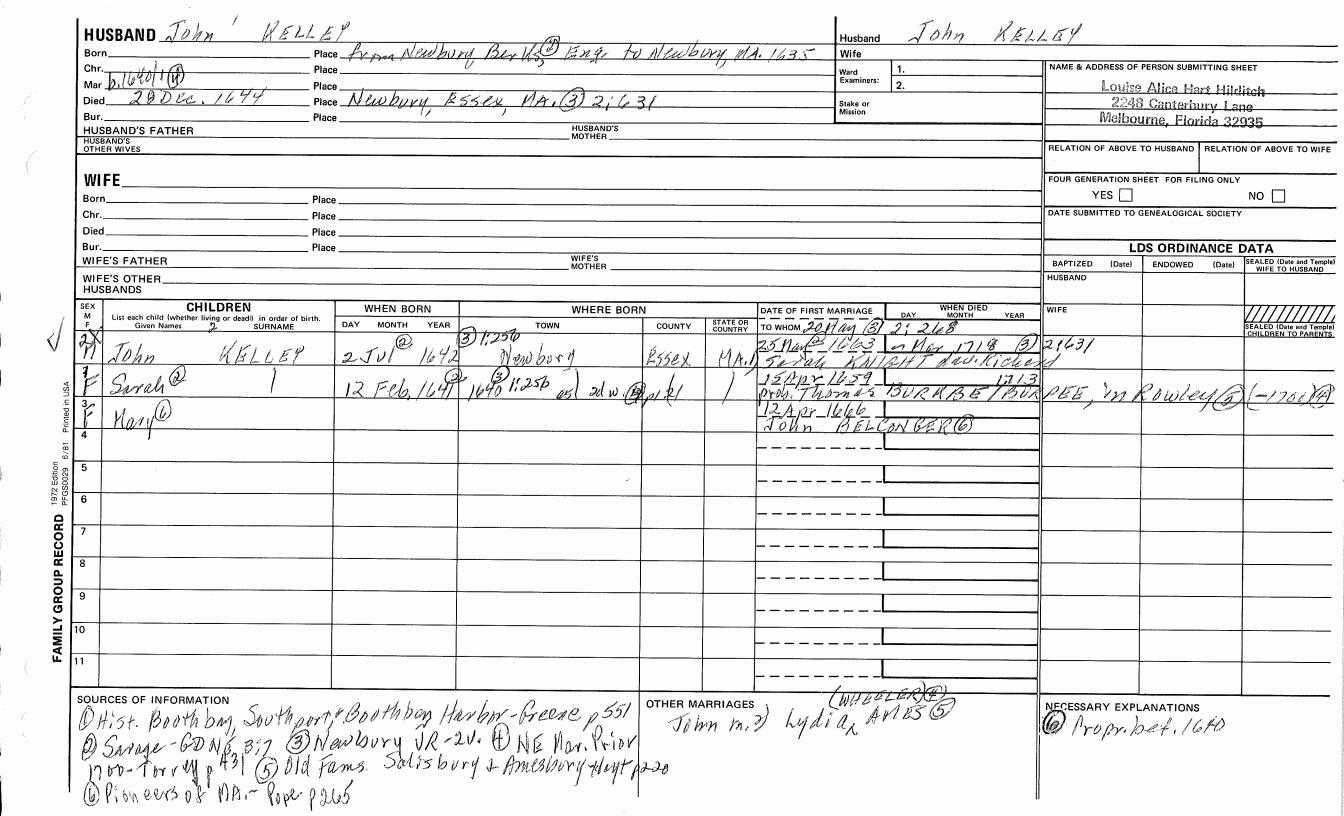 HUSBAND John¹ KELLEY
Husband John KELLEY
Born Place from Newbury, Berks ④ Eng. to Newbury, MA. 1635
Wife
Chr. Place
Ward Examiners: 1.
2.
NAME & ADDRESS OF PERSON SUBMITTING SHEET
Louise Alice Hart Hilditch
2248 Canterbury Lane
Melbourne, Florida 32935
Mar b. 1640/1 ④ Place
Died 28 Dec. 1644 Place Newbury, Essex, MA. ③ 2:631
Stake or Mission
Bur. Place
HUSBAND'S FATHER HUSBAND'S MOTHER
HUSBAND'S OTHER WIVES
RELATION OF ABOVE TO HUSBAND RELATION OF ABOVE TO WIFE
WIFE
FOUR GENERATION SHEET FOR FILING ONLY
YES NO
Born Place
Chr. Place
DATE SUBMITTED TO GENEALOGICAL SOCIETY
Died Place
Bur. Place
LDS ORDINANCE DATA
WIFE'S FATHER WIFE'S MOTHER
BAPTIZED (Date) ENDOWED (Date) SEALED (Date and Temple) WIFE TO HUSBAND
WIFE'S OTHER HUSBANDS
HUSBAND
SEX M F
CHILDREN
List each child (whether living or dead) in order of birth.
Given Names 2 SURNAME
WHEN BORN
DAY MONTH YEAR
WHERE BORN
TOWN COUNTY STATE OR COUNTRY
DATE OF FIRST MARRIAGE
TO WHOM
WHEN DIED
DAY MONTH YEAR
WIFE
SEALED (Date and Temple) CHILDREN TO PARENTS
20 May ③ 2:268
2 M John KELLEY 2 Jul ② 1642 ③ 1:256 Newbury Essex MA.
25 Mar ② 1663 Mar 1718 ③ 2:631
Sarah KNIGHT dau. Richard
1 F Sarah ② 12 Feb. 1641 ② 1640 ③ 1:256
15 Apr 1659 1713
prob. Thomas BURKBE/BURPEE, in Rowley ⑤ (-1700) ④
3 F Mary ⑥
12 Apr 1666
John BELCONGER ⑥
4
5
6
7
8
9
10
11
FAMILY GROUP RECORD 1972 Edition PFGS0029 6/81 Printed in USA
SOURCES OF INFORMATION
① Hist. Boothbay, Southport & Boothbay Harbor-Greene p 551
② Savage-GDNE 3:7 ③ Newbury VR-2v. ④ NE Mar. Prior
1700-Torrey p 431 ⑤ Old Fams. Salisbury & Amesbury-Hoyt p220
⑥ Pioneers of MA.- Pope p265
OTHER MARRIAGES
(WHEELER) ④
John m. 2) Lydia AMES ⑤
NECESSARY EXPLANATIONS
⑥ Propr. bef. 1640